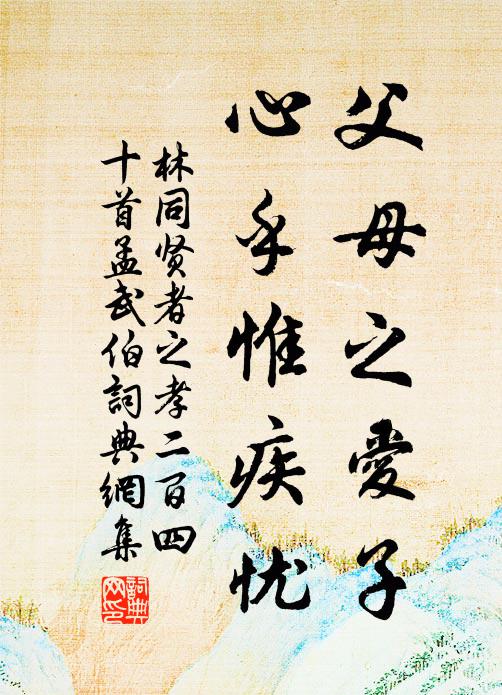 父母之愛子
心乎惟疾忧
林同贤者之孝二百四
十首孟武伯詞典網集
詞典
网印